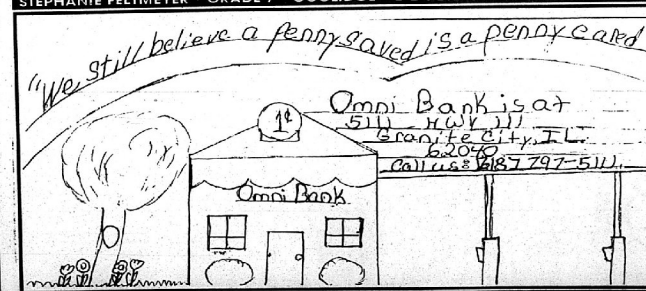 STEPHANIE FELTMEYER GRADE 7
"We still believe a penny saved is a penny eared
1¢
Omni Bank is at
5111 HWY 111
Granite City, IL.
62040
Call us: 618 797-5111
Omni Bank